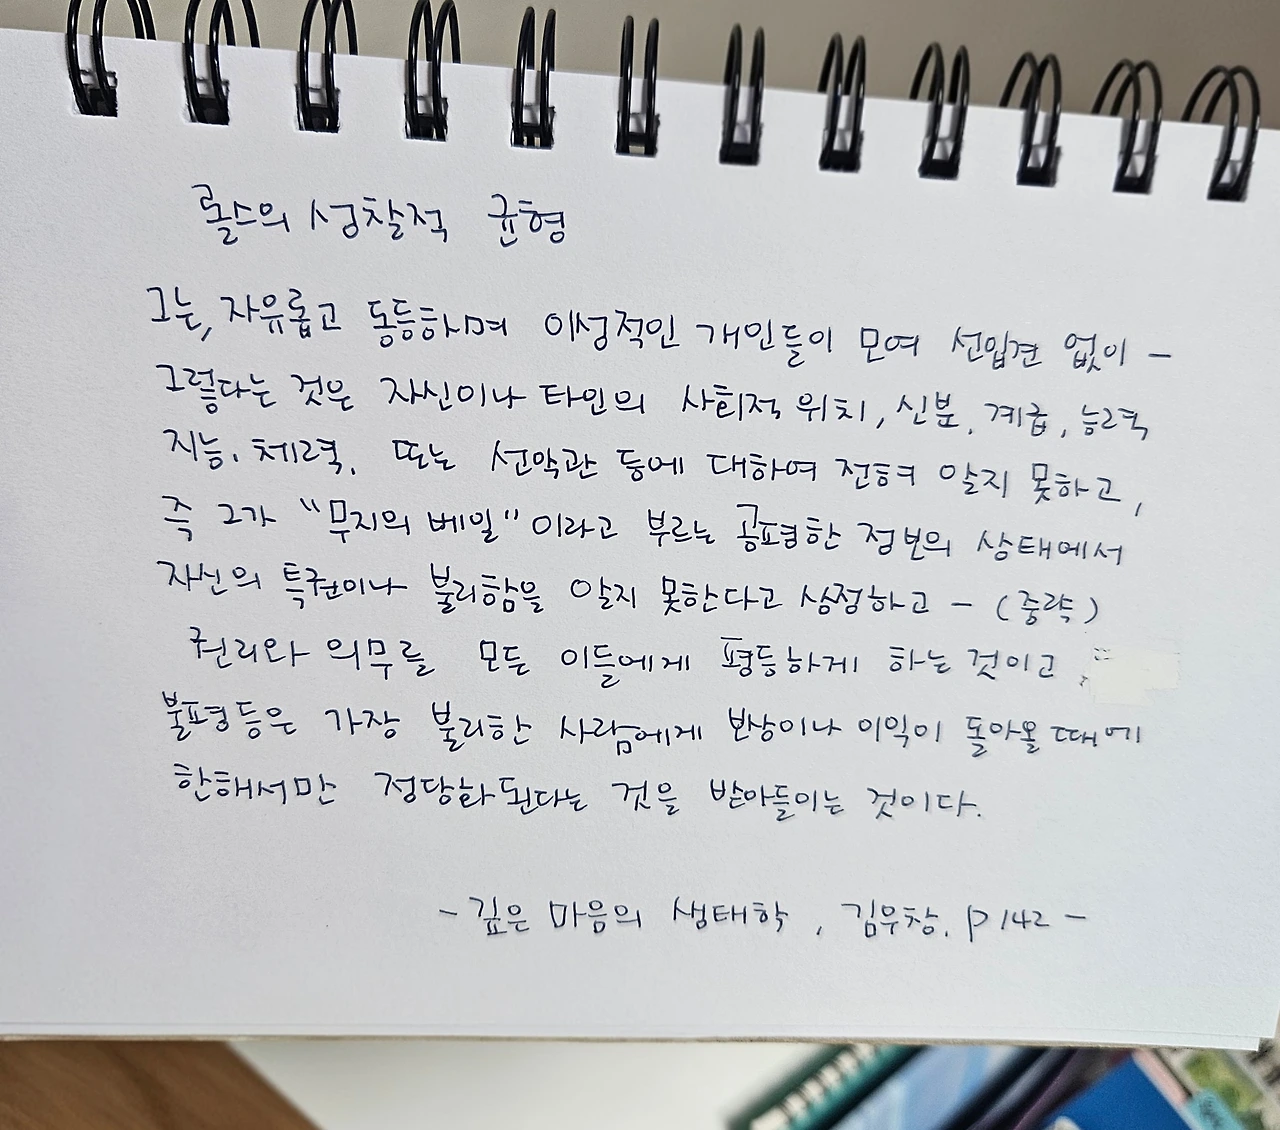 롤스의 성찰적 균형
그는, 자유롭고 동등하며 이성적인 개인들이 모여 선입견 없이 -
그렇다는 것은 자신이나 타인의 사회적 위치, 신분, 계급, 능력
지능, 체력, 또는 선악관 등에 대하여 전혀 알지 못하고,
즉 그가 "무지의 베일"이라고 부르는 공평한 정보의 상태에서
자신의 특권이나 불리함을 알지 못한다고 상정하고 - (중략)
권리와 의무를 모든 이들에게 평등하게 하는 것이고,
불평등은 가장 불리한 사람에게 보상이나 이익이 돌아올 때에
한해서만 정당화된다는 것을 받아들이는 것이다.
- 깊은 마음의 생태학, 김우창, p142 -